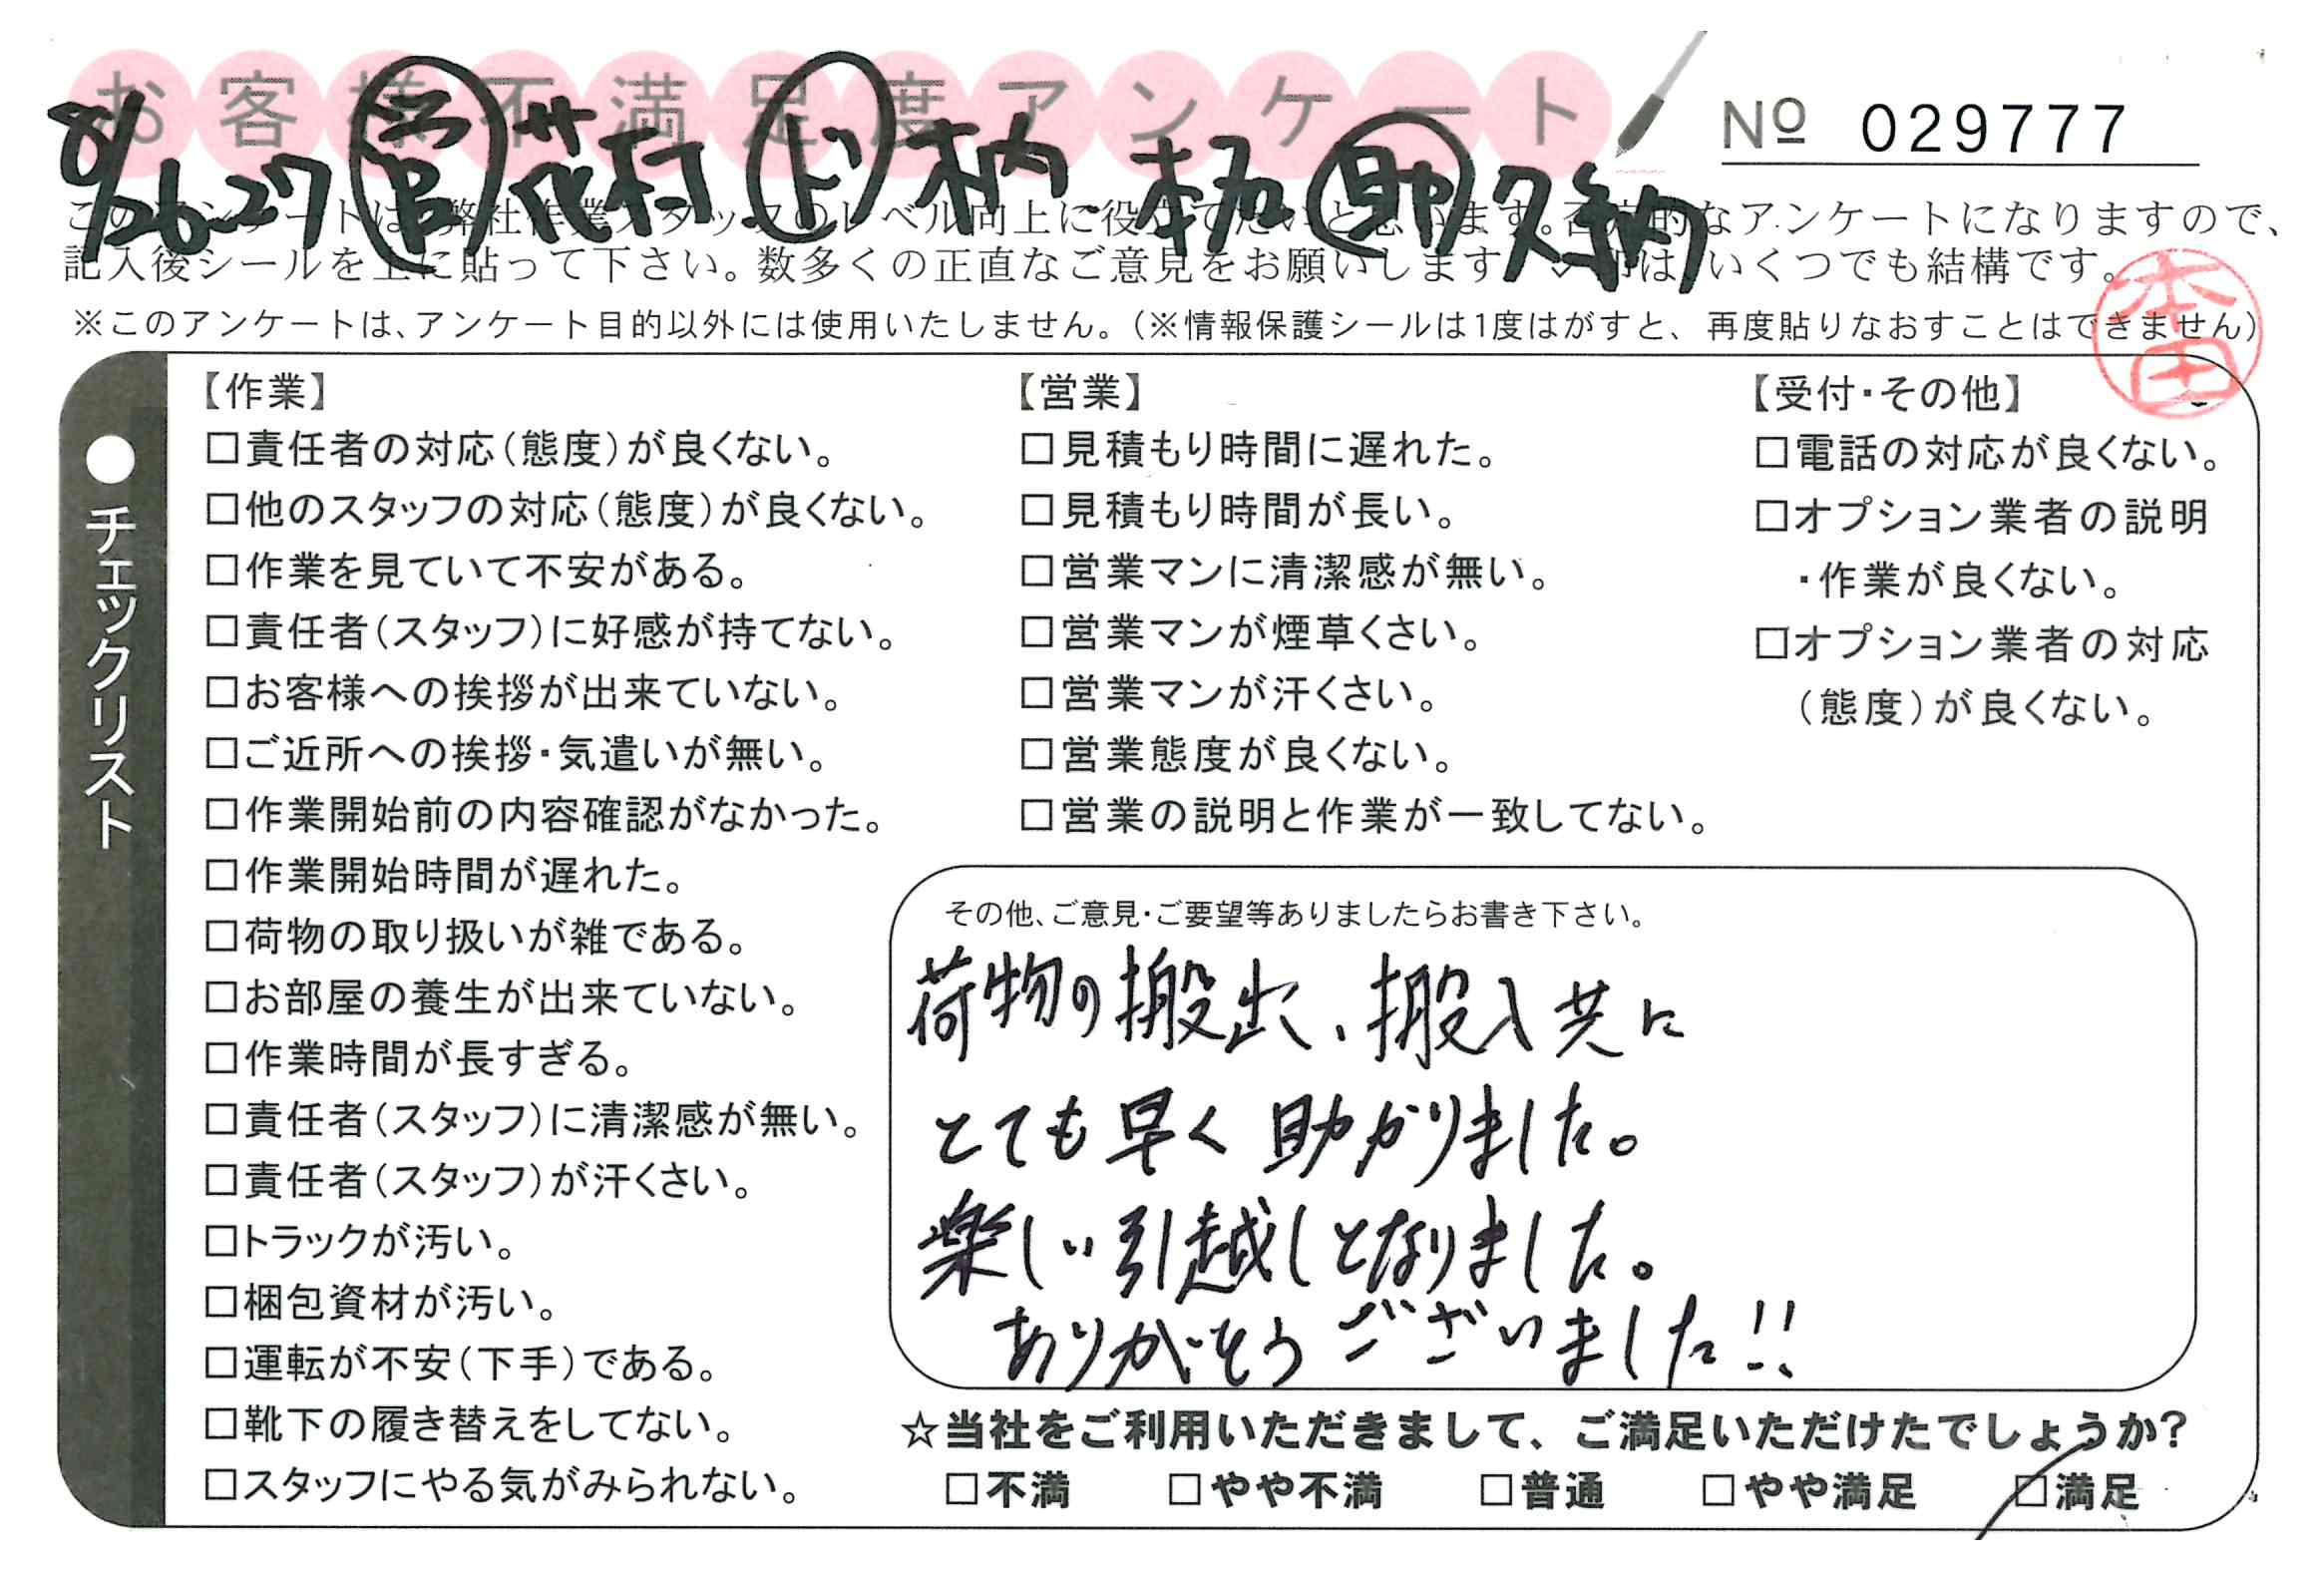 お客様不満足度アンケート
№ 029777
8/26-27 営 花村 ド 柄 助 久納
このアンケートは、弊社作業スタッフのレベル向上に役立てたいと思います。否定的なアンケートになりますので、
記入後シールを上に貼って下さい。数多くの正直なご意見をお願いします。レ印は、いくつでも結構です。
※このアンケートは、アンケート目的以外には使用いたしません。(※情報保護シールは1度はがすと、再度貼りなおすことはできません)
本田
●チェックリスト
【作業】
□責任者の対応(態度)が良くない。
□他のスタッフの対応(態度)が良くない。
□作業を見ていて不安がある。
□責任者(スタッフ)に好感が持てない。
□お客様への挨拶が出来ていない。
□ご近所への挨拶・気遣いが無い。
□作業開始前の内容確認がなかった。
□作業開始時間が遅れた。
□荷物の取り扱いが雑である。
□お部屋の養生が出来ていない。
□作業時間が長すぎる。
□責任者(スタッフ)に清潔感が無い。
□責任者(スタッフ)が汗くさい。
□トラックが汚い。
□梱包資材が汚い。
□運転が不安(下手)である。
□靴下の履き替えをしてない。
□スタッフにやる気がみられない。
【営業】
□見積もり時間に遅れた。
□見積もり時間が長い。
□営業マンに清潔感が無い。
□営業マンが煙草くさい。
□営業マンが汗くさい。
□営業態度が良くない。
□営業の説明と作業が一致してない。
【受付・その他】
□電話の対応が良くない。
□オプション業者の説明
・作業が良くない。
□オプション業者の対応
(態度)が良くない。
その他、ご意見・ご要望等ありましたらお書き下さい。
荷物の搬出、搬入共に
とても早く助かりました。
楽しい引越しとなりました。
ありがとうございました!!
☆当社をご利用いただきまして、ご満足いただけたでしょうか?
□不満 □やや不満 □普通 □やや満足 □満足